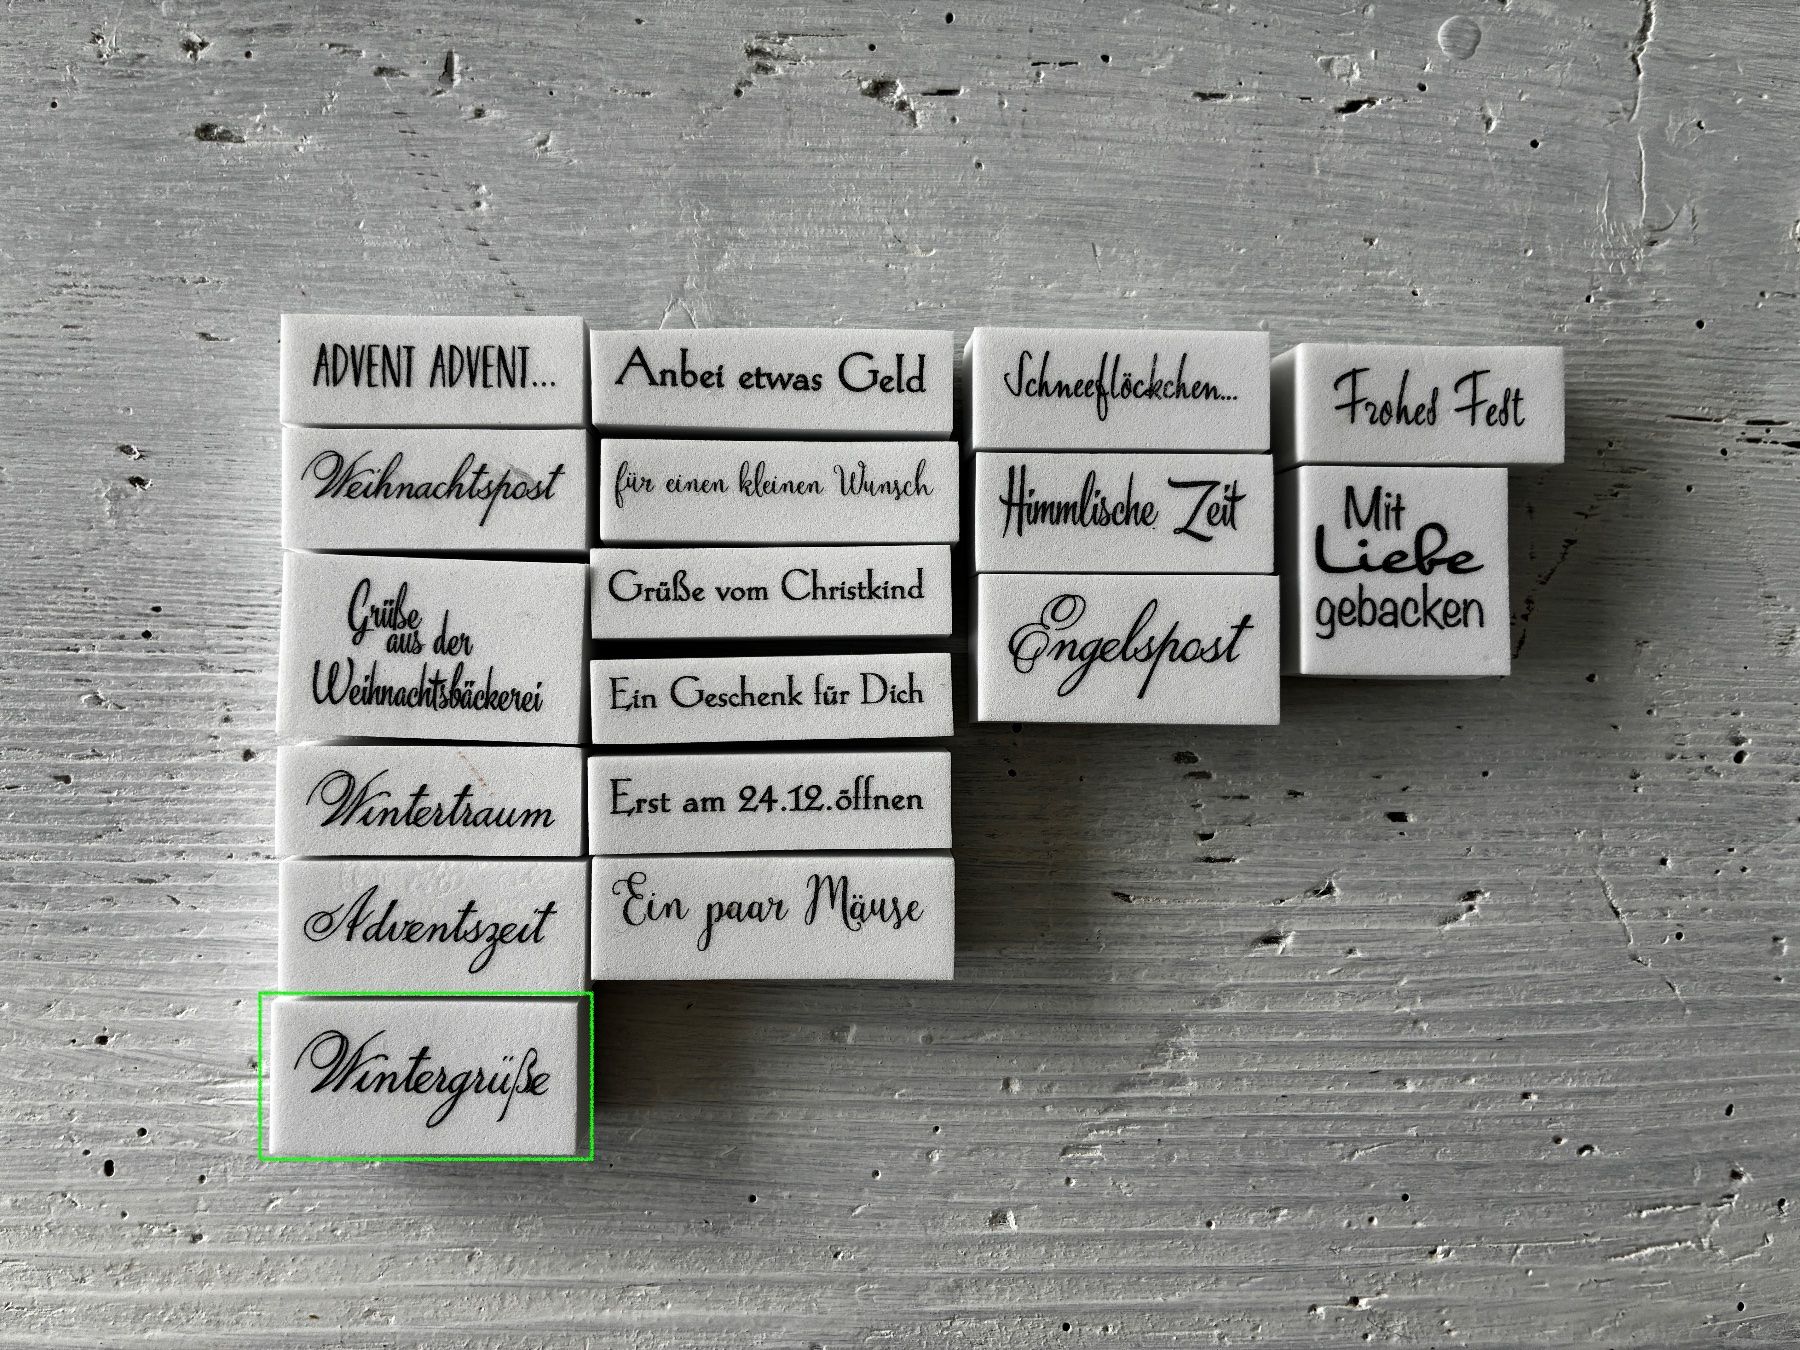 ADVENT ADVENT...
Weihnachtspost
Grüße
aus der
Weihnachtsbäckerei
Wintertraum
Adventszeit
Wintergrüße
Anbei etwas Geld
für einen kleinen Wunsch
Grüße vom Christkind
Ein Geschenk für Dich
Erst am 24.12.öffnen
Ein paar Mäuse
Schneeflöckchen...
Himmlische Zeit
Engelspost
Frohes Fest
Mit
Liebe
gebacken